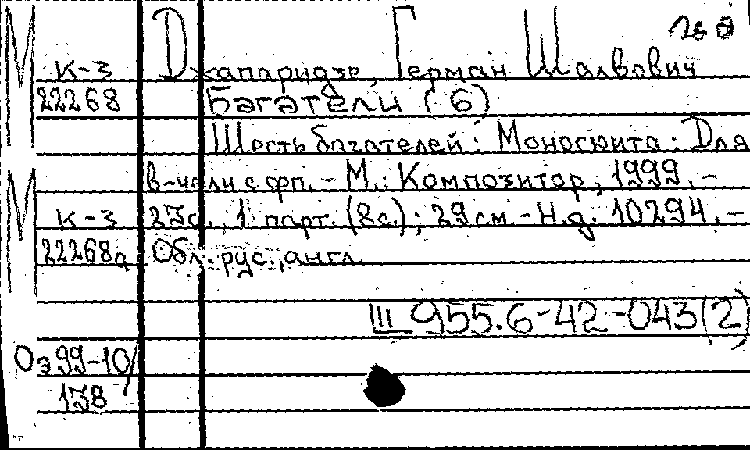 М
К-3
22268
Джапаридзе, Герман Шалвович
Багатели (6)
Шесть багателей: Моносюита: Для
в-чели с фп. - М.: Композитор, 1999. -
М
К-3
22268а
23с., 1 парт. (8с.); 29 см. - Н.д. 10294. -
Обл. рус., англ.
Ш 955.6-42-043(2)
Оэ 99-10/
138